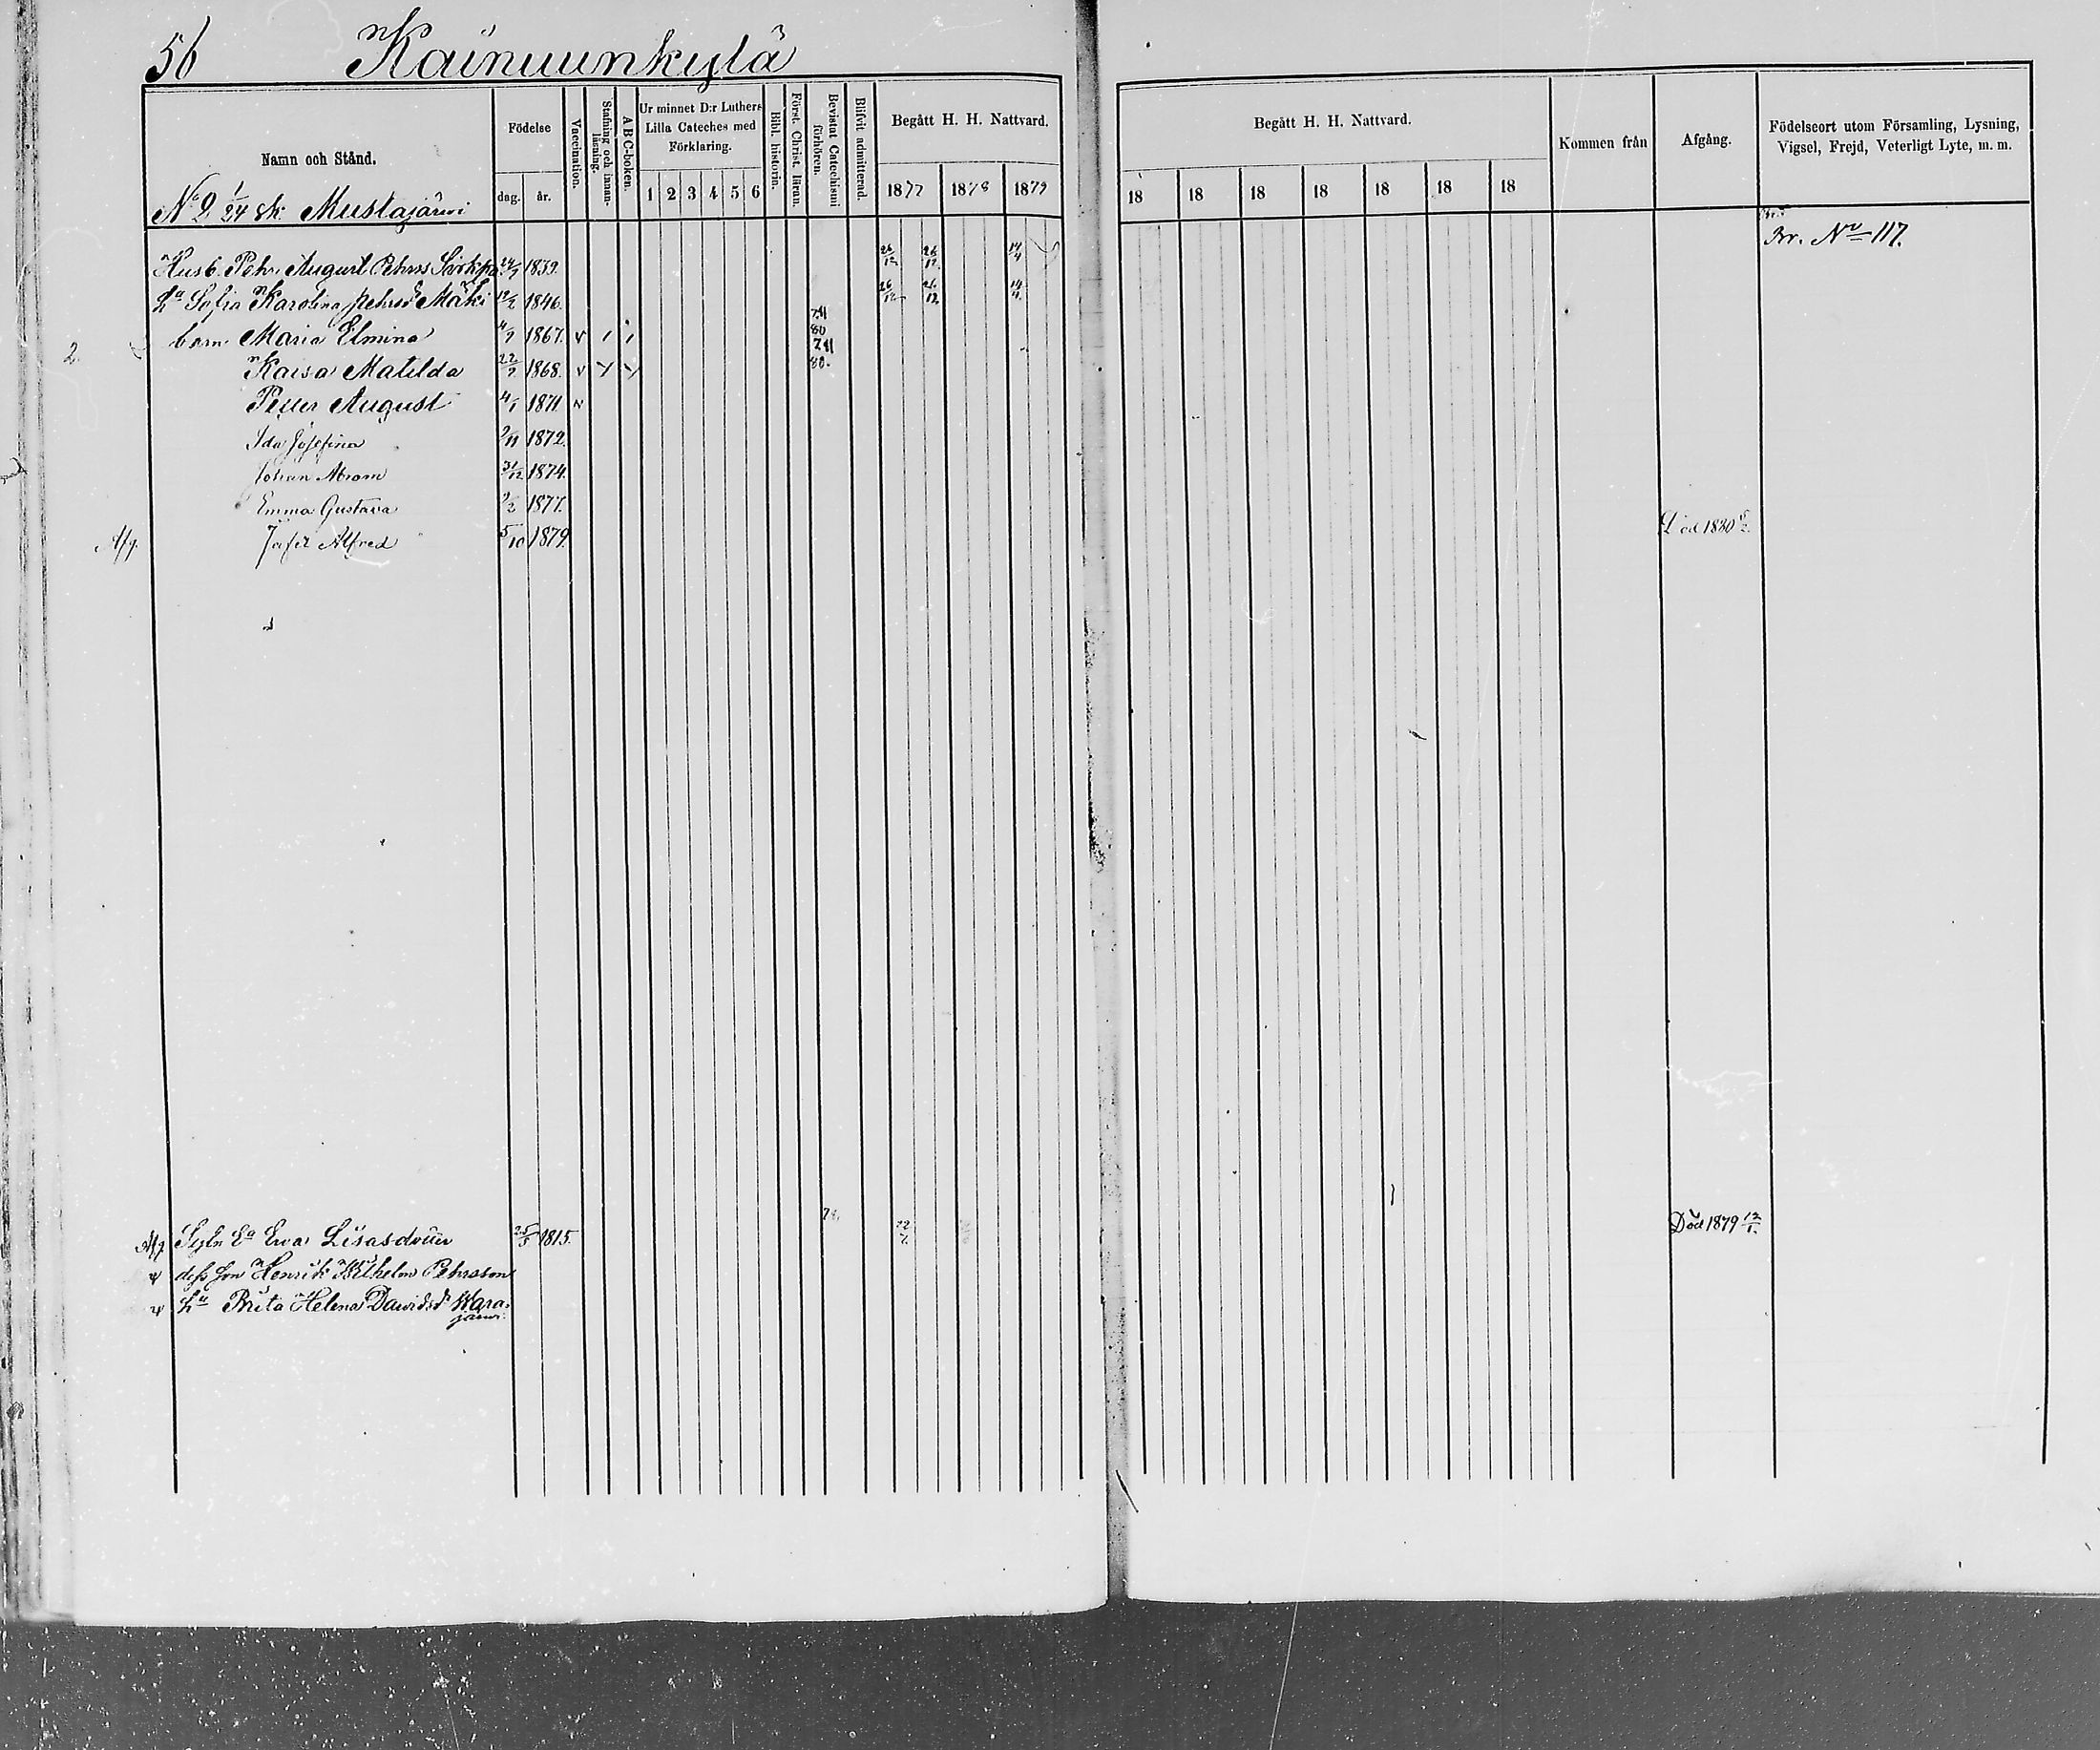 56 Kainuunkylä
Namn och Stånd.
Födelse
dag. år.
Vaccination.
Stafning och innanläsning.
A B C-boken.
Ur minnet D:r Luthers
Lilla Cateches med
Förklaring.
1 2 3 4 5 6
Bibl. historia.
Först. Christ. läran.
Bevistat Catechismi
förhören.
Blifvit admitterad.
Begått H. H. Nattvard.
1877 1878 1879
Begått H. H. Nattvard.
18 18 18 18 18 18 18
Kommen från
Afgång.
Födelseort utom Församling, Lysning,
Vigsel, Frejd, Veterligt Lyte, m. m.
No 2 1/24 sk: Mustajärwi
Br. No 117.
Husb. Pehr August Pehrss 1839. 26/12 26/12 14/4
Hu Sofia Karolina Pehrsdr Mäki 12/2 1846. 26/12 26/12 14/4
barn Maria Elmina 4/9 1867. v 80
2. Kaisa Matilda 22/9 1868. v 80.
Petter August 4/1 1871
Ida Josefina 9/11 1872.
Johan Abram 31/12 1874.
Emma Gustava 9/2 1877.
Afg. Alfred 5/10 1879. Död 1880
Afg. Ea Ewa Lisasdotter 25/5 1815. Död 1879 12/1.
dess son Henrik Wilhelm Pehrsson
Hu Brita Helena Davidsdr Wara-
järwi.